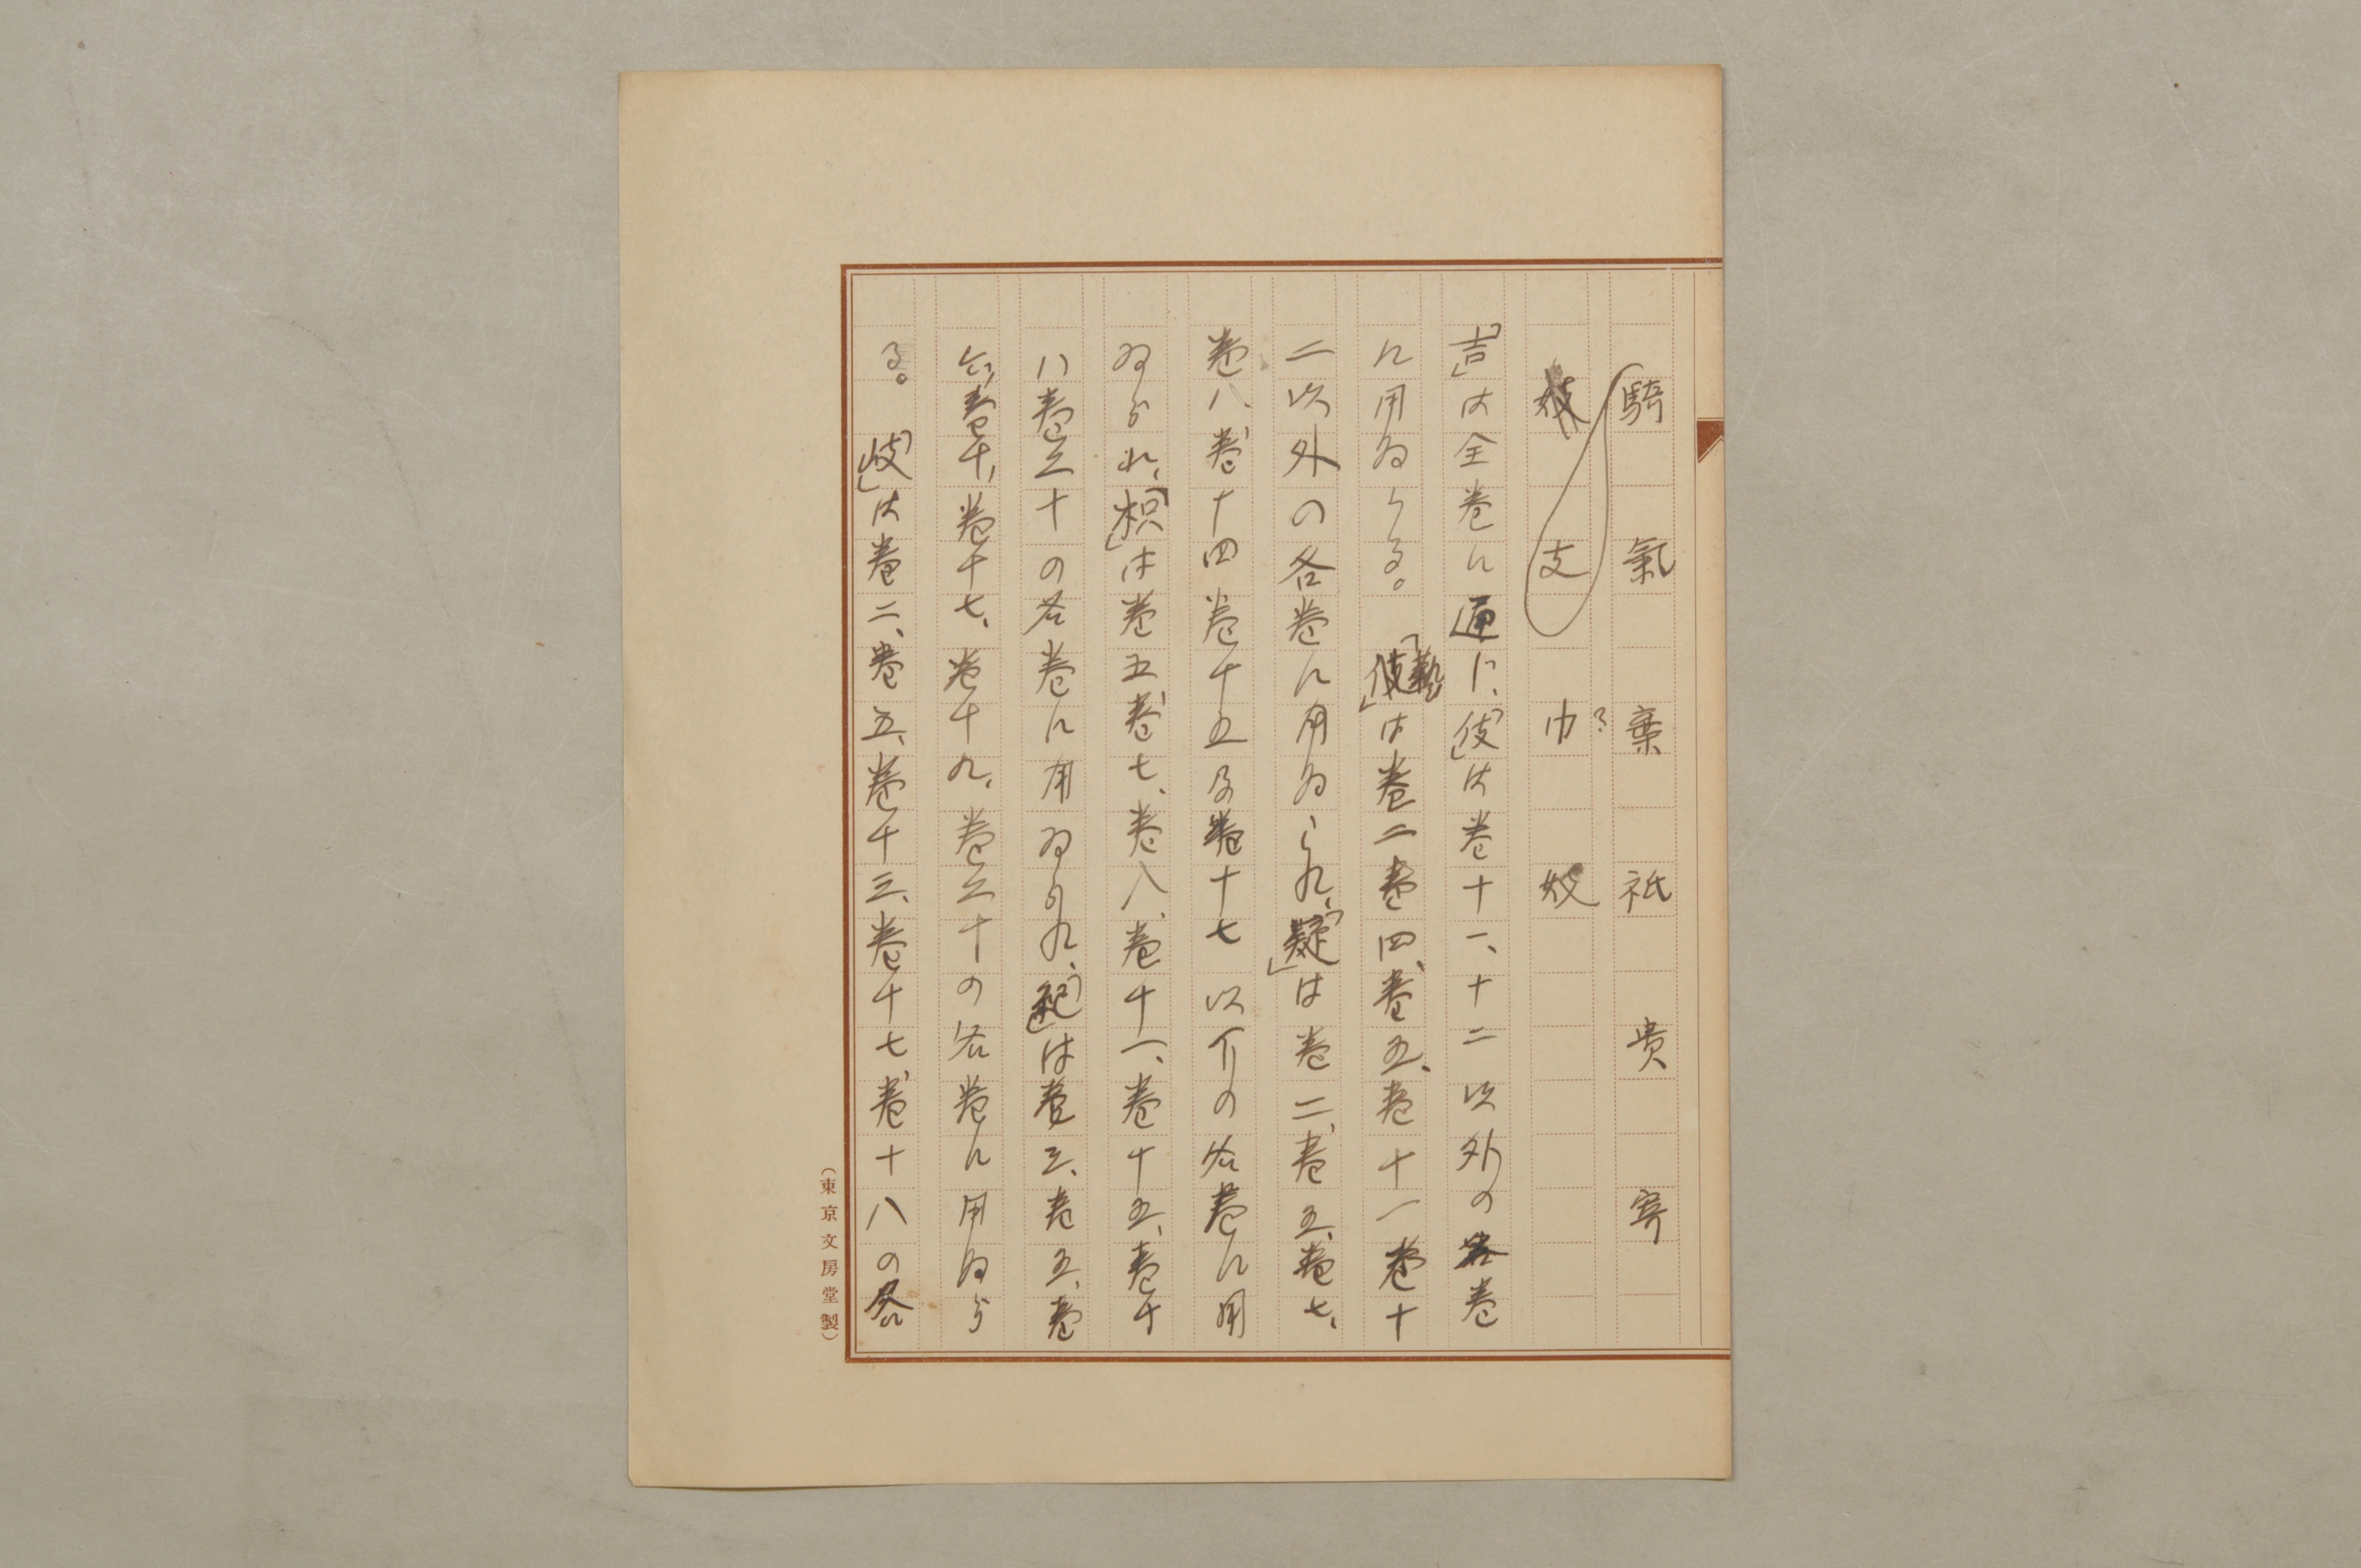 騎 氣 棄 祇 貴 寄
妓 支 巾 妓
「吉」は全巻に通に、「伎」は巻十一、十二以外の各巻
に用ゐらる。「藝」「伎」は巻二巻四、巻五、巻十一巻十
二以外の各巻に用ゐられ、「疑」は巻二、巻五、巻七、
巻八、巻十四巻十五及巻十七以下の各巻に用
ゐられ、「枳」は巻五、巻七、巻八、巻十一、巻十五、巻十
八巻二十の各巻に用ゐられ、「紀」は巻三、巻五、巻
六、巻十、巻十七、巻十九、巻二十の各巻に用ゐら
る。「岐」は巻二、巻五、巻十三、巻十七、巻十八の各
(東京文房堂製)